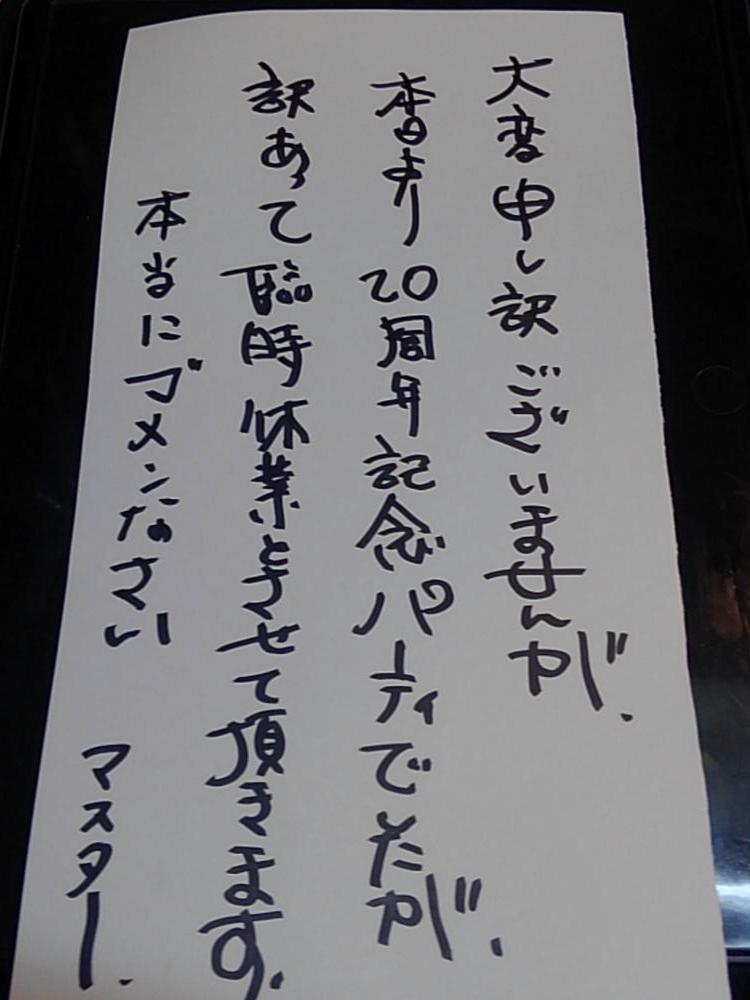 大変申し訳ございませんが、
本日より20周年記念パーティでしたが、
訳あって臨時休業とさせて頂きます。
本当にゴメンなさい
マスター.